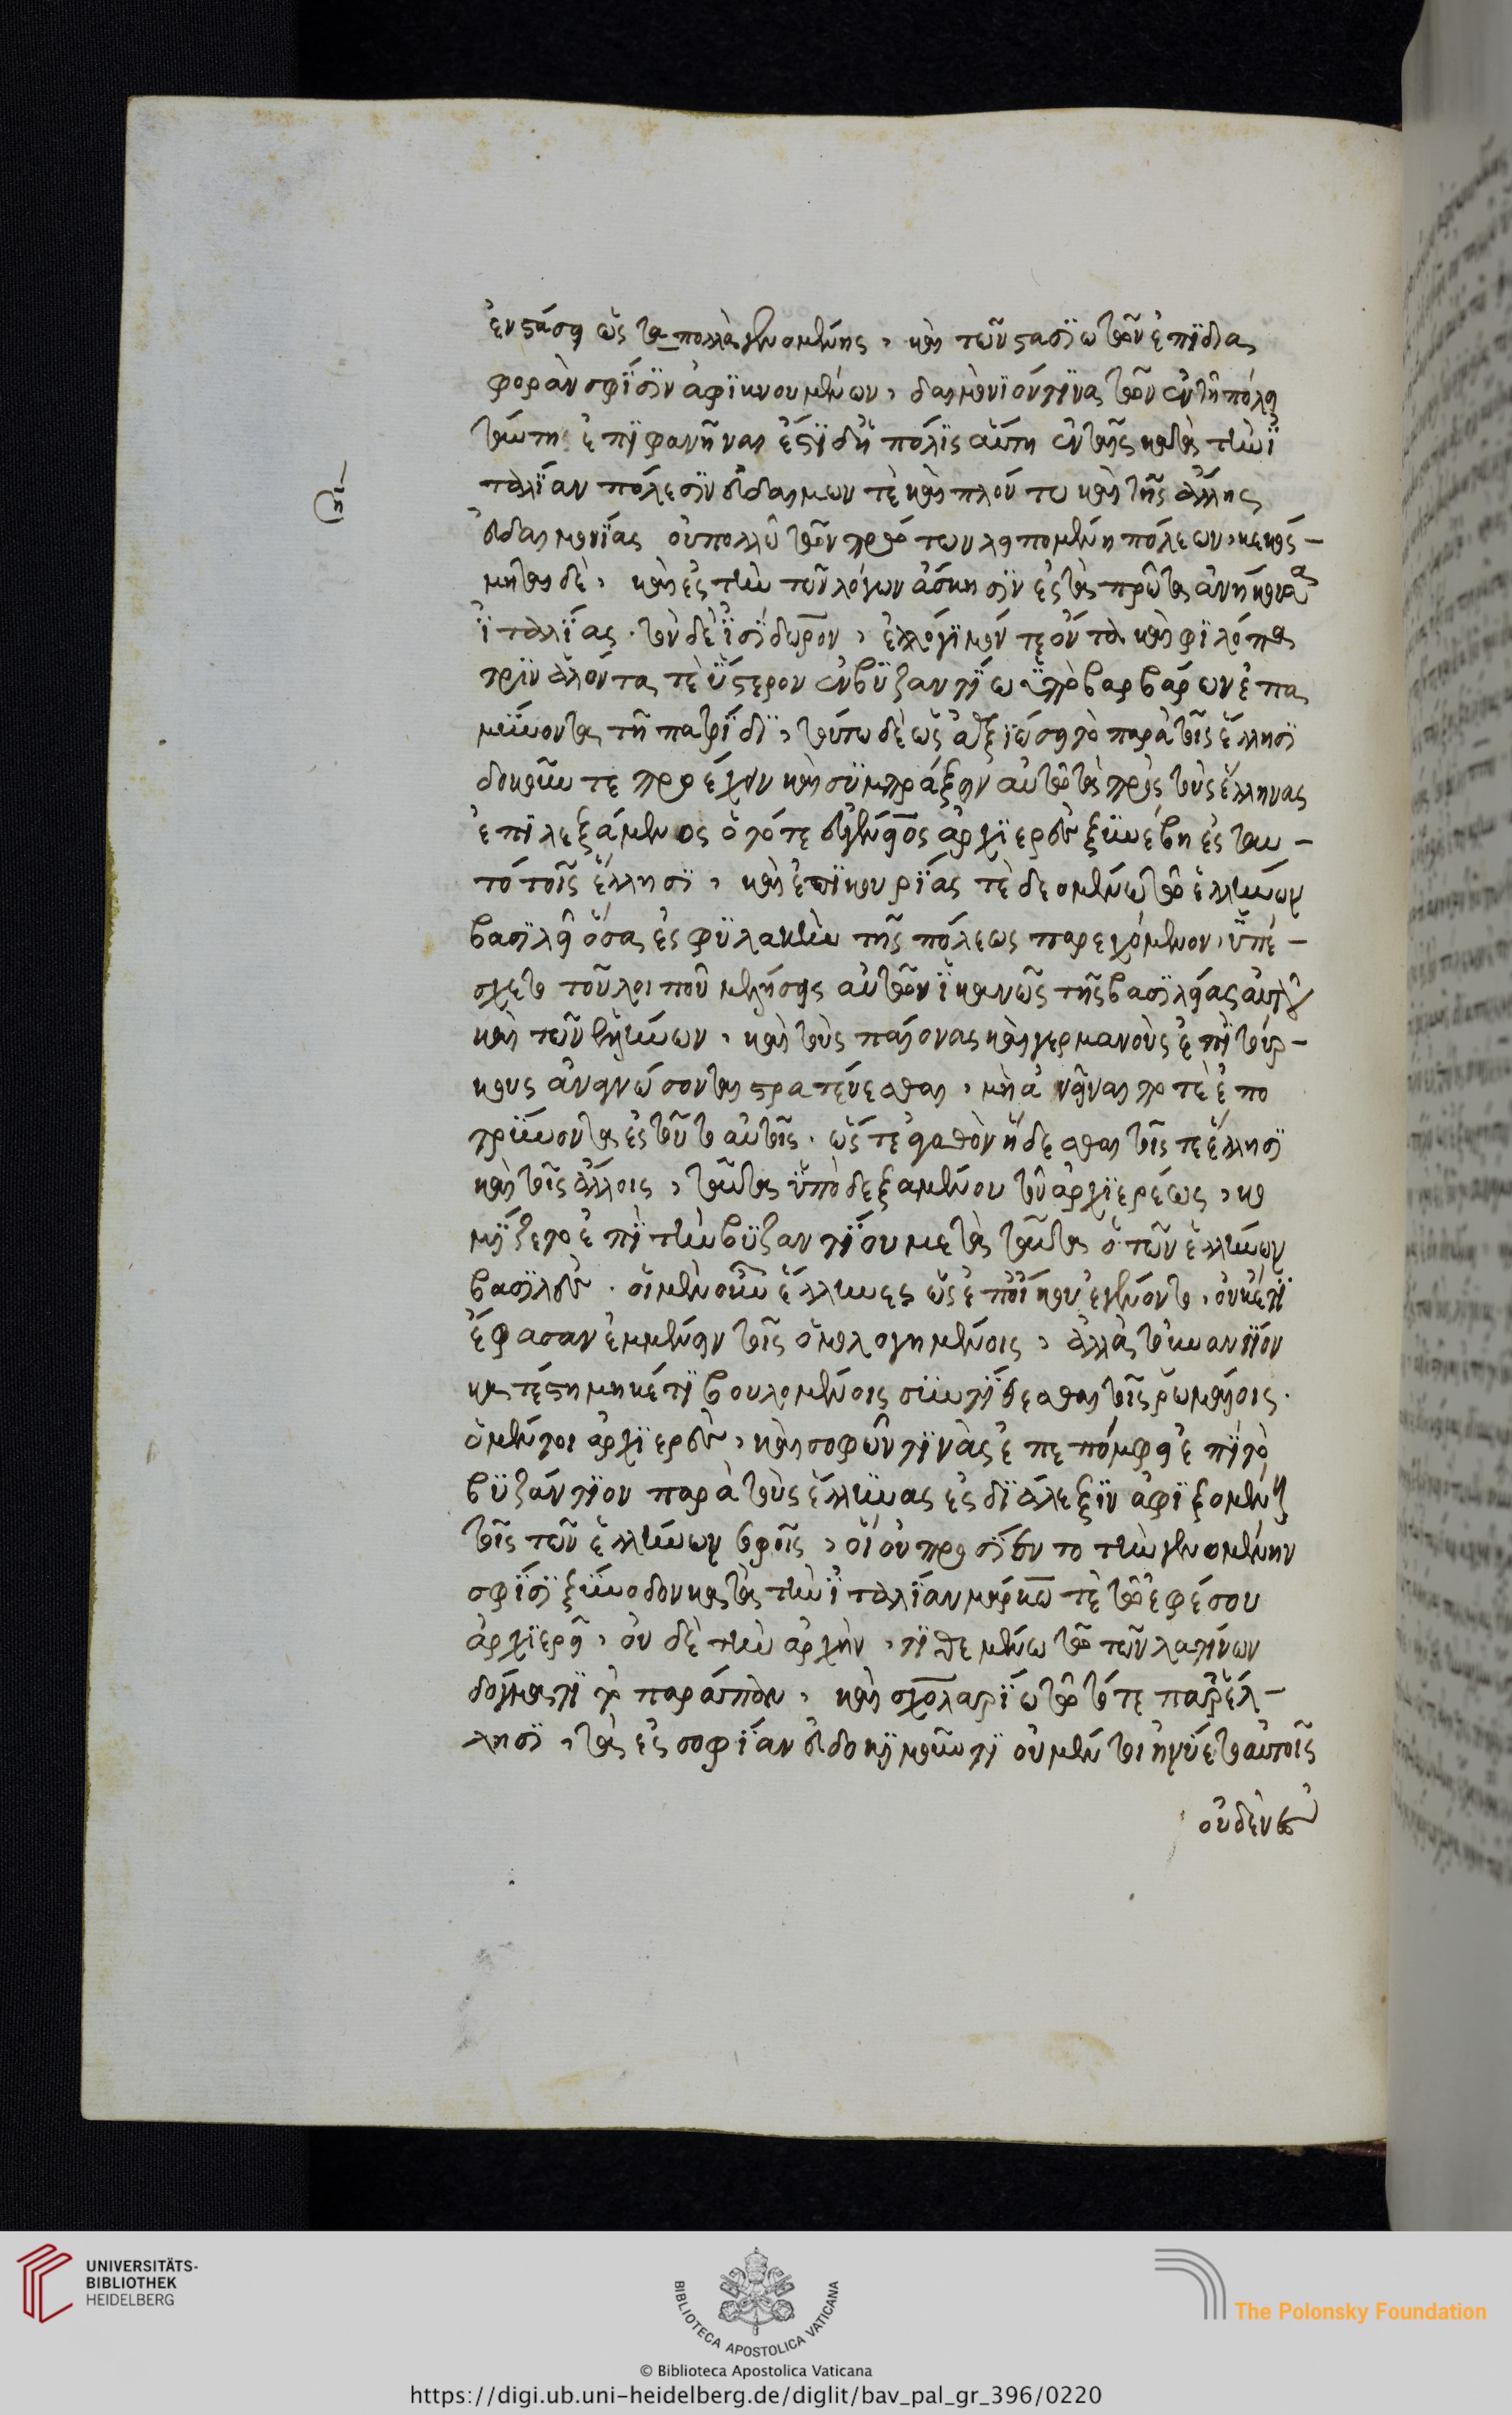 ἐνστάσει ὡς τὰ πολλὰ γινομένης, καὶ τῶν στασιωτῶν ἐπὶ δια
φορὰν σφίσιν ἀφικνουμένων, δαιμόνιόν τινα τῶν ἐν τῇ πόλει
ταύτῃ ἐπιφανῆναι ἔστι δὴ πόλις αὕτη ἐν ταῖς κατὰ τὴν ἰ
ταλίαν πόλεσιν εὐδαίμων τὲ καὶ πλούτω καὶ τῆς ἄλλης
εὐδαιμονίας οὐ πολλῶ τῶν πρώτων λειπομένη πόλεων, κεκόσ-
μηται δὲ, καὶ ἐς τὴν τῶν λόγων ἄσκησιν ἐς τὰ πρῶτα ἀνήκουσα
ἰταλίας. τὸν δὲ ἰσίδωρον, ἐλλόγιμόν τε ὄντα καὶ φιλόπα
τριν ἁλόντα τὲ ὕστερον ἐν βυζαντίω ὑπὸ βαρβάρων ἐπα
μύνοντα τῇ πατρίδι, τούτω δὲ ὡς ἀξιώσει τὸ παρὰ τοῖς ἕλλησι
δοκοῦν τε προέχειν καὶ συμπράξειν αὐτῶ τὰ πρὸς τοὺς ἕλληνας
ἐπιλεξάμενος ὁ τότε εὐγένιος ἀρχιερεὺς ξυνέβη ἐς ταυ-
τὸ τοῖς ἕλλησι, καὶ ἐπικουρίας τὲ δεομένω τῶ ἑλλήνων
βασιλεῖ ὅσα ἐς φυλακὴν τῆς πόλεως παρεχόμενον, ὑπέ-
σχετο τοῦ λοιποῦ μελήσειν αὐτῶν ἱκανῶς τῆς βασιλείας αὐτοῦ
καὶ τῶν ἑλλήνων, καὶ τοὺς παίονας καὶ γερμανοὺς ἐπὶ τούρ-
κους ἀναγνώσοντα στρατεύεσθαι, μὴ ἀνεῖναι ποτὲ ἐπο
τρύνοντα ἐς τοῦτο αὐτοῖς. ὥς τε ἀγαθὸν ἥδεσθαι τοῖς τε ἕλλησι
καὶ τοῖς ἄλλοις, ταῦτα ὑποδεξαμένου τοῦ ἀρχιερέως, κο
μίζετο ἐπὶ τὴν βυζαντίου μετὰ ταῦτα ὁ τῶν ἑλλήνων
βασιλεύς. οἱ μὲν οὖν ἕλληνες ὡς ἐπ' οἴκου ἐγένοντο, οὐκέτι
ἔφασαν ἐμμένειν τοῖς ὁμολογημένοις, ἀλλὰ τοὐναντίον
κατέστη μηκέτι βουλομένοις συντίθεσθαι τοῖς ῥωμαίοις.
ὁ μέντοι ἀρχιερεὺς, καὶ σοφῶν τινὰς ἐπεπόμφει ἐπὶ τὸ
βυζάντιον παρὰ τοὺς ἕλληνας ἐς διάλεξιν ἀφιξομένους
τοῖς τῶν ἑλλήνων σοφοῖς, οἳ οὐ προσίεντο τὴν γενομένην
σφίσι ξύνοδον κατὰ τὴν ἰταλίαν μάρκω τὲ τῶ ἐφέσου
ἀρχιερεῖ, οὐδὲ τὴν ἀρχὴν, τιθεμένω τῶ τῶν λατίνων
δόγματι τὸ παράπαν, καὶ σχολαρίω τῶ τότε παρ' ἕλ-
λησι, τὰ ἐς σοφίαν εὐδοκιμοῦντι οὐ μέντοι ἠνύετο αὐτοῖς
οὐδένα